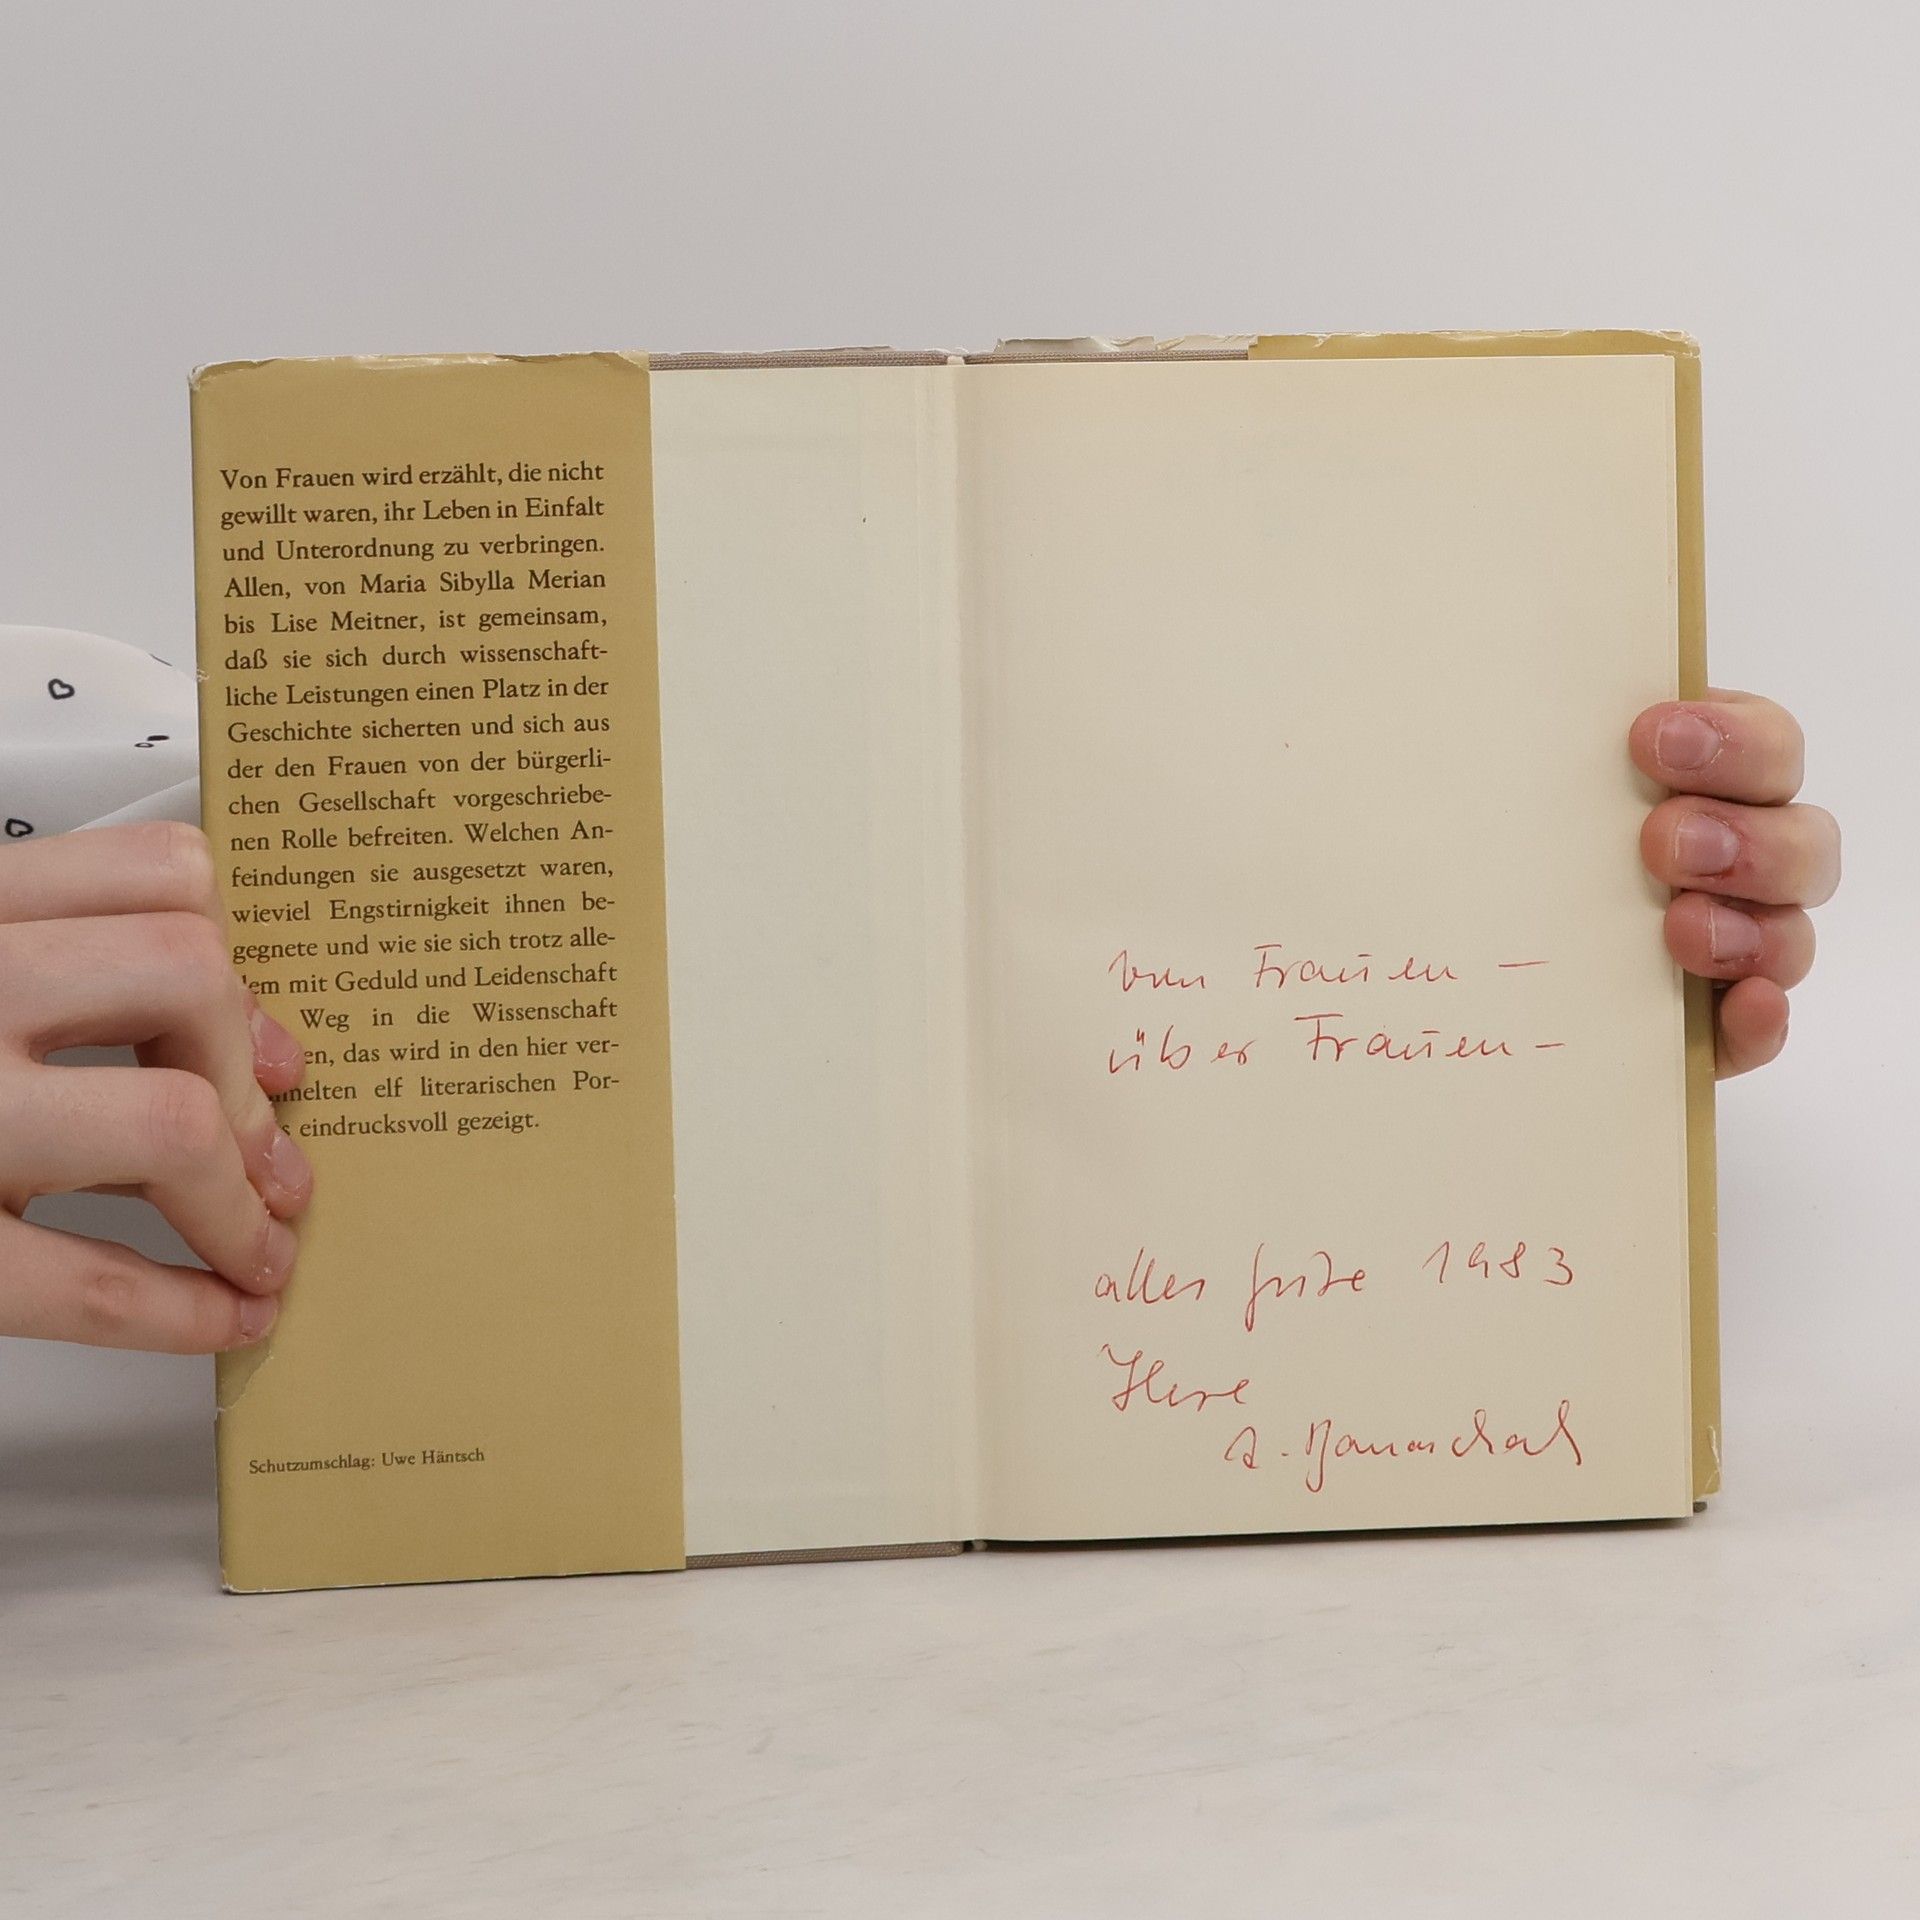 Von Frauen wird erzählt, die nicht
gewillt waren, ihr Leben in Einfalt
und Unterordnung zu verbringen.
Allen, von Maria Sibylla Merian
bis Lise Meitner, ist gemeinsam,
daß sie sich durch wissenschaft-
liche Leistungen einen Platz in der
Geschichte sicherten und sich aus
der den Frauen von der bürgerli-
chen Gesellschaft vorgeschriebe-
nen Rolle befreiten. Welchen An-
feindungen sie ausgesetzt waren,
wieviel Engstirnigkeit ihnen be-
gegnete und wie sie sich trotz alle-
mit Geduld und Leidenschaft
Weg in die Wissenschaft
das wird in den hier ver-
elf literarischen Por-
eindrucksvoll gezeigt.
Schutzumschlag: Uwe Häntsch
von Frauen —
über Frauen —
alles gute 1983